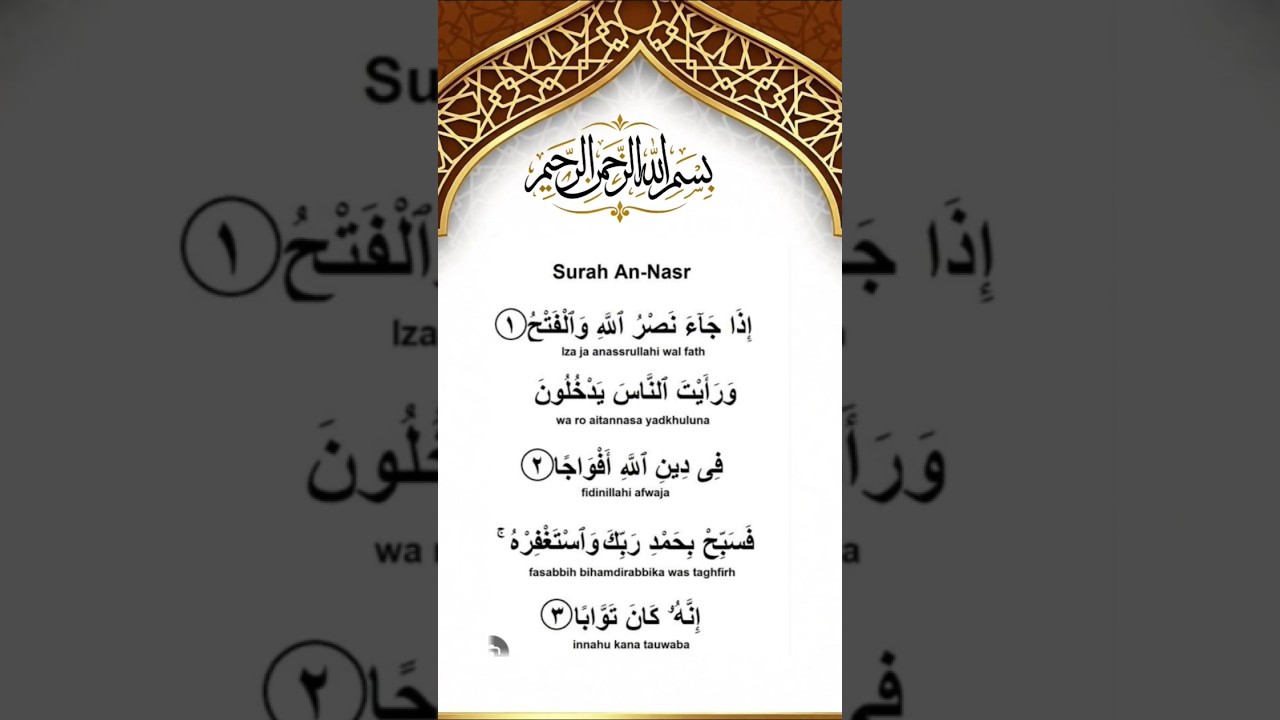 بِسْمِ اللهِ الرَّحْمٰنِ الرَّحِيْمِ
Surah An-Nasr
إِذَا جَآءَ نَصْرُ ٱللَّهِ وَٱلْفَتْحُ ١
Iza ja anassrullahi wal fath
وَرَأَيْتَ ٱلنَّاسَ يَدْخُلُونَ
wa ro aitannasa yadkhuluna
فِى دِينِ ٱللَّهِ أَفْوَاجًا ٢
fidinillahi afwaja
فَسَبِّحْ بِحَمْدِ رَبِّكَ وَٱسْتَغْفِرْهُ ۚ
fasabbih bihamdirabbika was taghfirh
إِنَّهُۥ كَانَ تَوَّابًا ٣
innahu kana tauwaba